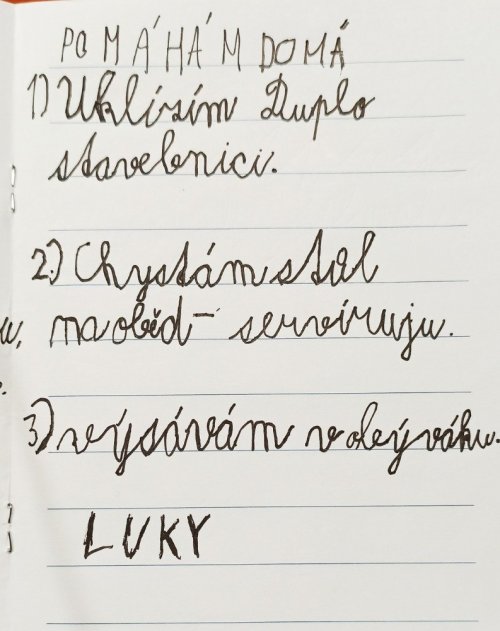 POMÁHÁM DOMÁ
1) Uklízím Duplo
stavebnici.
2.) Chystám stul
na oběd- servíruju.
3.) výsávám v obýváku.
LUKY